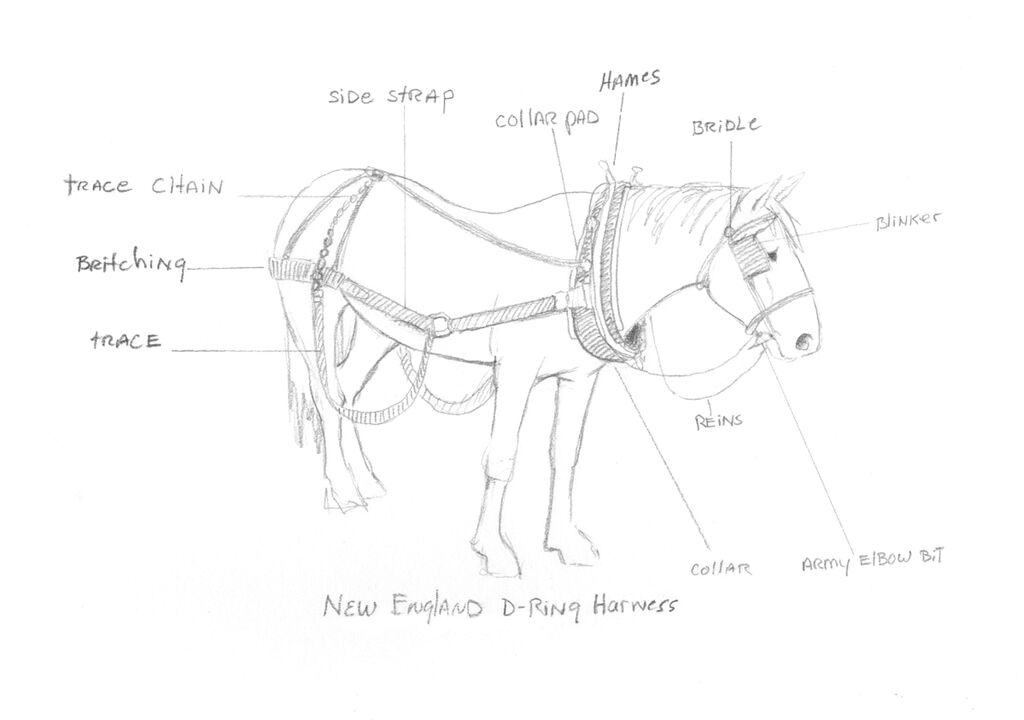 HAMES
SIDE STRAP
COLLAR PAD
BRIDLE
TRACE CHAIN
BLINKER
BRITCHING
TRACE
REINS
COLLAR
ARMY ELBOW BIT
NEW ENGLAND D-RING HARNESS